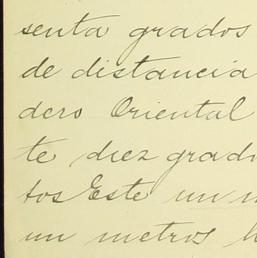 senta grados
de distancia
dero Oriental
te diez grad
tos Este un
un metros